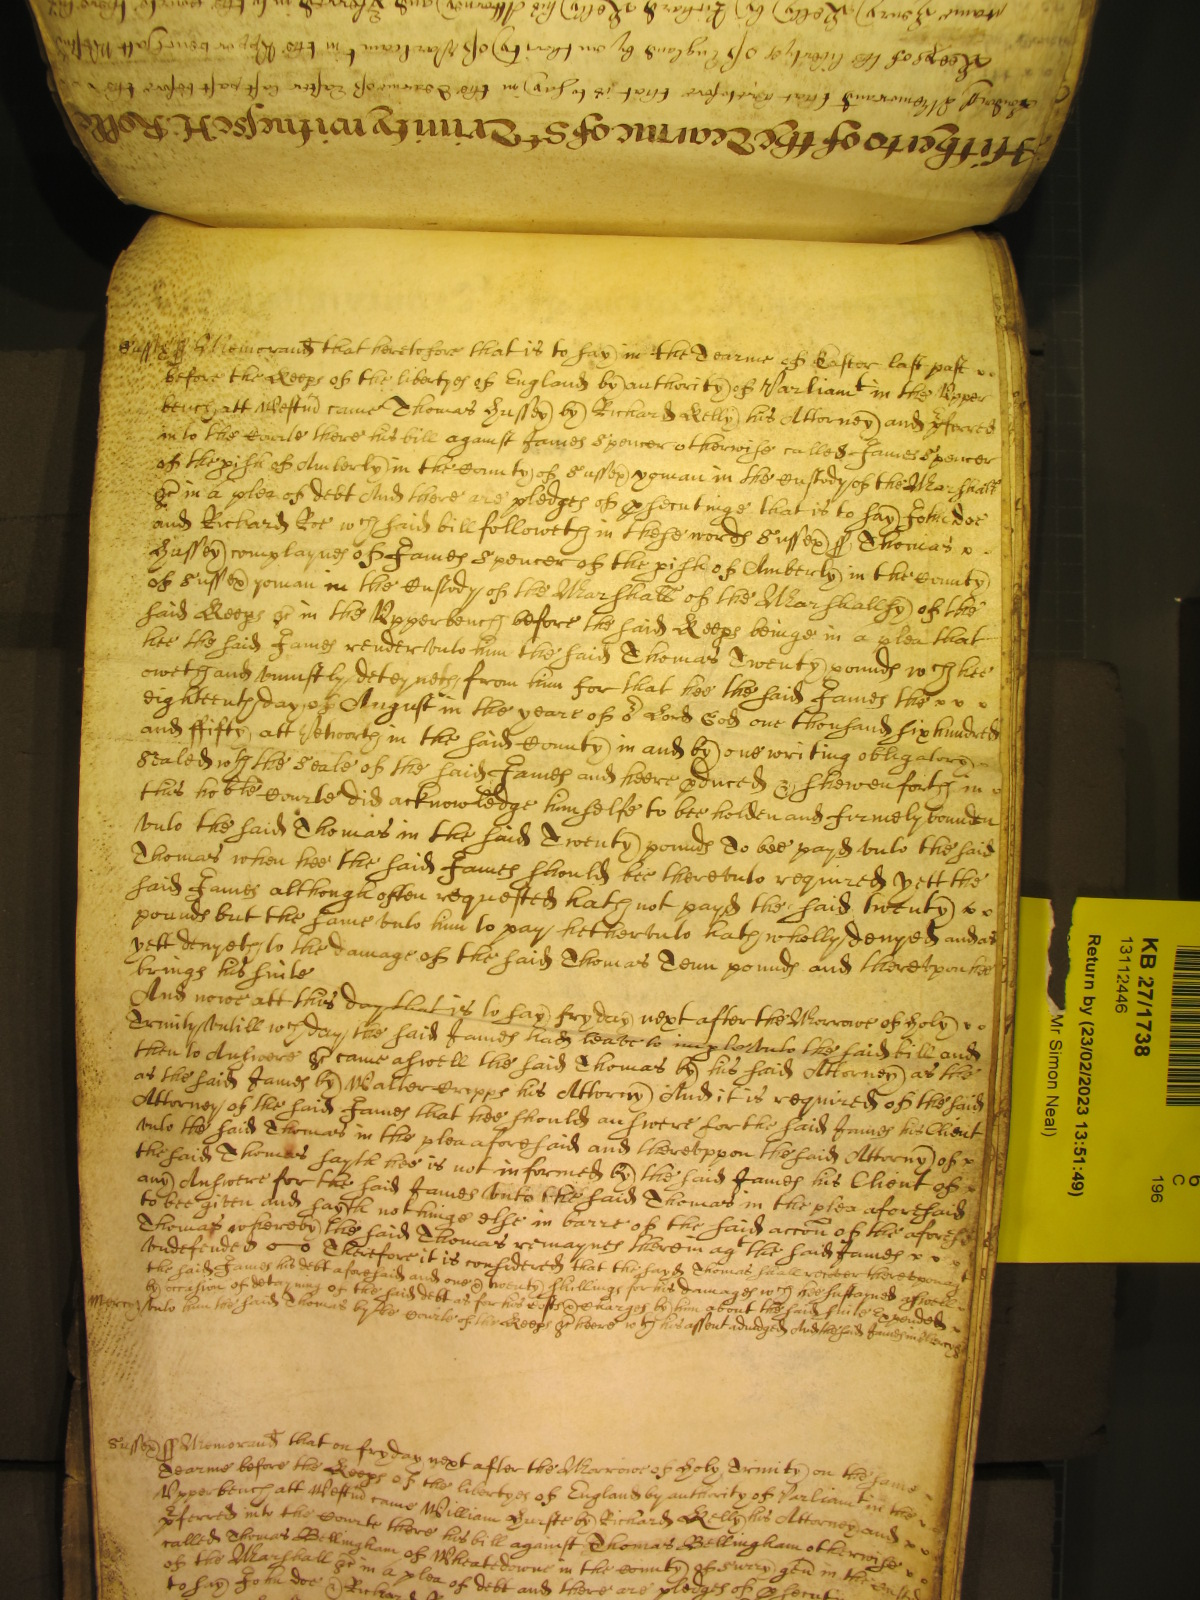 Hitherto of the Tearme of St Trinity witnesse H: Rolle
Sussex ss Memorand that heretofore that is to say in the Tearme of Easter last past
before the Keeps of the libertyes of England by authority of Parliamt in the Upper
bench att Westm came Thomas Hussey by Richard Kelly his Attorney and pferred
into the Courte there his bill against James Spencer otherwise called James Spencer
of the pish of Amberly in the County of Sussex yoman in the Custody of the Marshall
&c in a plea of debt And there are pledges of psecutinge that is to say John Doe
and Richard Roe wch said bill followeth in these words Sussex ss Thomas
Hussey complaynes of James Spencer of the pish of Amberly in the County
of Sussex yoman in the Custody of the Marshall of the Marshallsy of the
said Keeps &c in the Upperbench before the said Keeps beinge in a plea that
hee the said James render unto him the said Thomas Twenty pounds wch hee
oweth and uniustly deteyneth from him for that hee the said James the
eighteenth day of August in the yeare of or Lord God one thousand six hundred
and ffifty att Petworth in the said County in and by one writing obligatory
Sealed wth the Seale of the said James and heere pduced & shewen forth in
this noble Courte did acknowledge himselfe to bee holden and firmely bounden
unto the said Thomas in the said Twenty pounds To bee payd unto the said
Thomas when hee the said James should bee thereunto required yett the
said James although often requested hath not payd the said twenty
pounds but the same unto him to pay hetherunto hath wholly denyed and as
yett denyeth to the damage of the said Thomas Tenn pounds and thereupon hee
brings his suite
And nowe att this day that is to say fryday next after the Morrowe of Holy
Trinity Untill wch day the said James hath leave to imple unto the said bill and
then to Answere &c came aswell the said Thomas by his said Attorney as the
as the said James by Walter Cripps his Attorny And it is required of the said
Attorney of the said James that hee should answere for the said James his Client
unto the said Thomas in the plea aforesaid and thereuppon the said Attorny of
the said Thomas sayth hee is not informed by the said James his Client of
any Answere for the said James unto the said Thomas in the plea aforesaid
to bee given and sayth nothinge else in barre of the said accon of the aforesd
Thomas whereby the said Thomas remaynes therein agt the said James
undefended Therefore it is considered that the sayd Thomas shall recover thereupon agt
the said James his debt aforesaid and one & twenty shillings for his damages wch hee sustayned aswell
by occasion of deteyning of the said debt as for his Costs & Charges by him about the said suite Expended
Mercy unto him the said Thomas by the Courte of the Keeps &c heere wth his assent adiudged And the said James in Mercy &c
Sussex ss Memorand that on fryday next after the Morrowe of Holy Trinity on the same
Tearme before the Keeps of the libertyes of England by authority of Parliamt in the
Upperbench att Westm came William Hurste by Richard Kelly his Attorney and
pferred into the Courte there his bill against Thomas Bellingham otherwise
called Thomas Bellingham of Wheatedowne in the County of gen in the Custod
of the Marshall &c in a plea of debt and there are pledges of psecuti
to say John Doe & Richard
KB 27/1738
13112446
Return by (23/02/2023 13:51:49)
Mr Simon Neal)
196
C